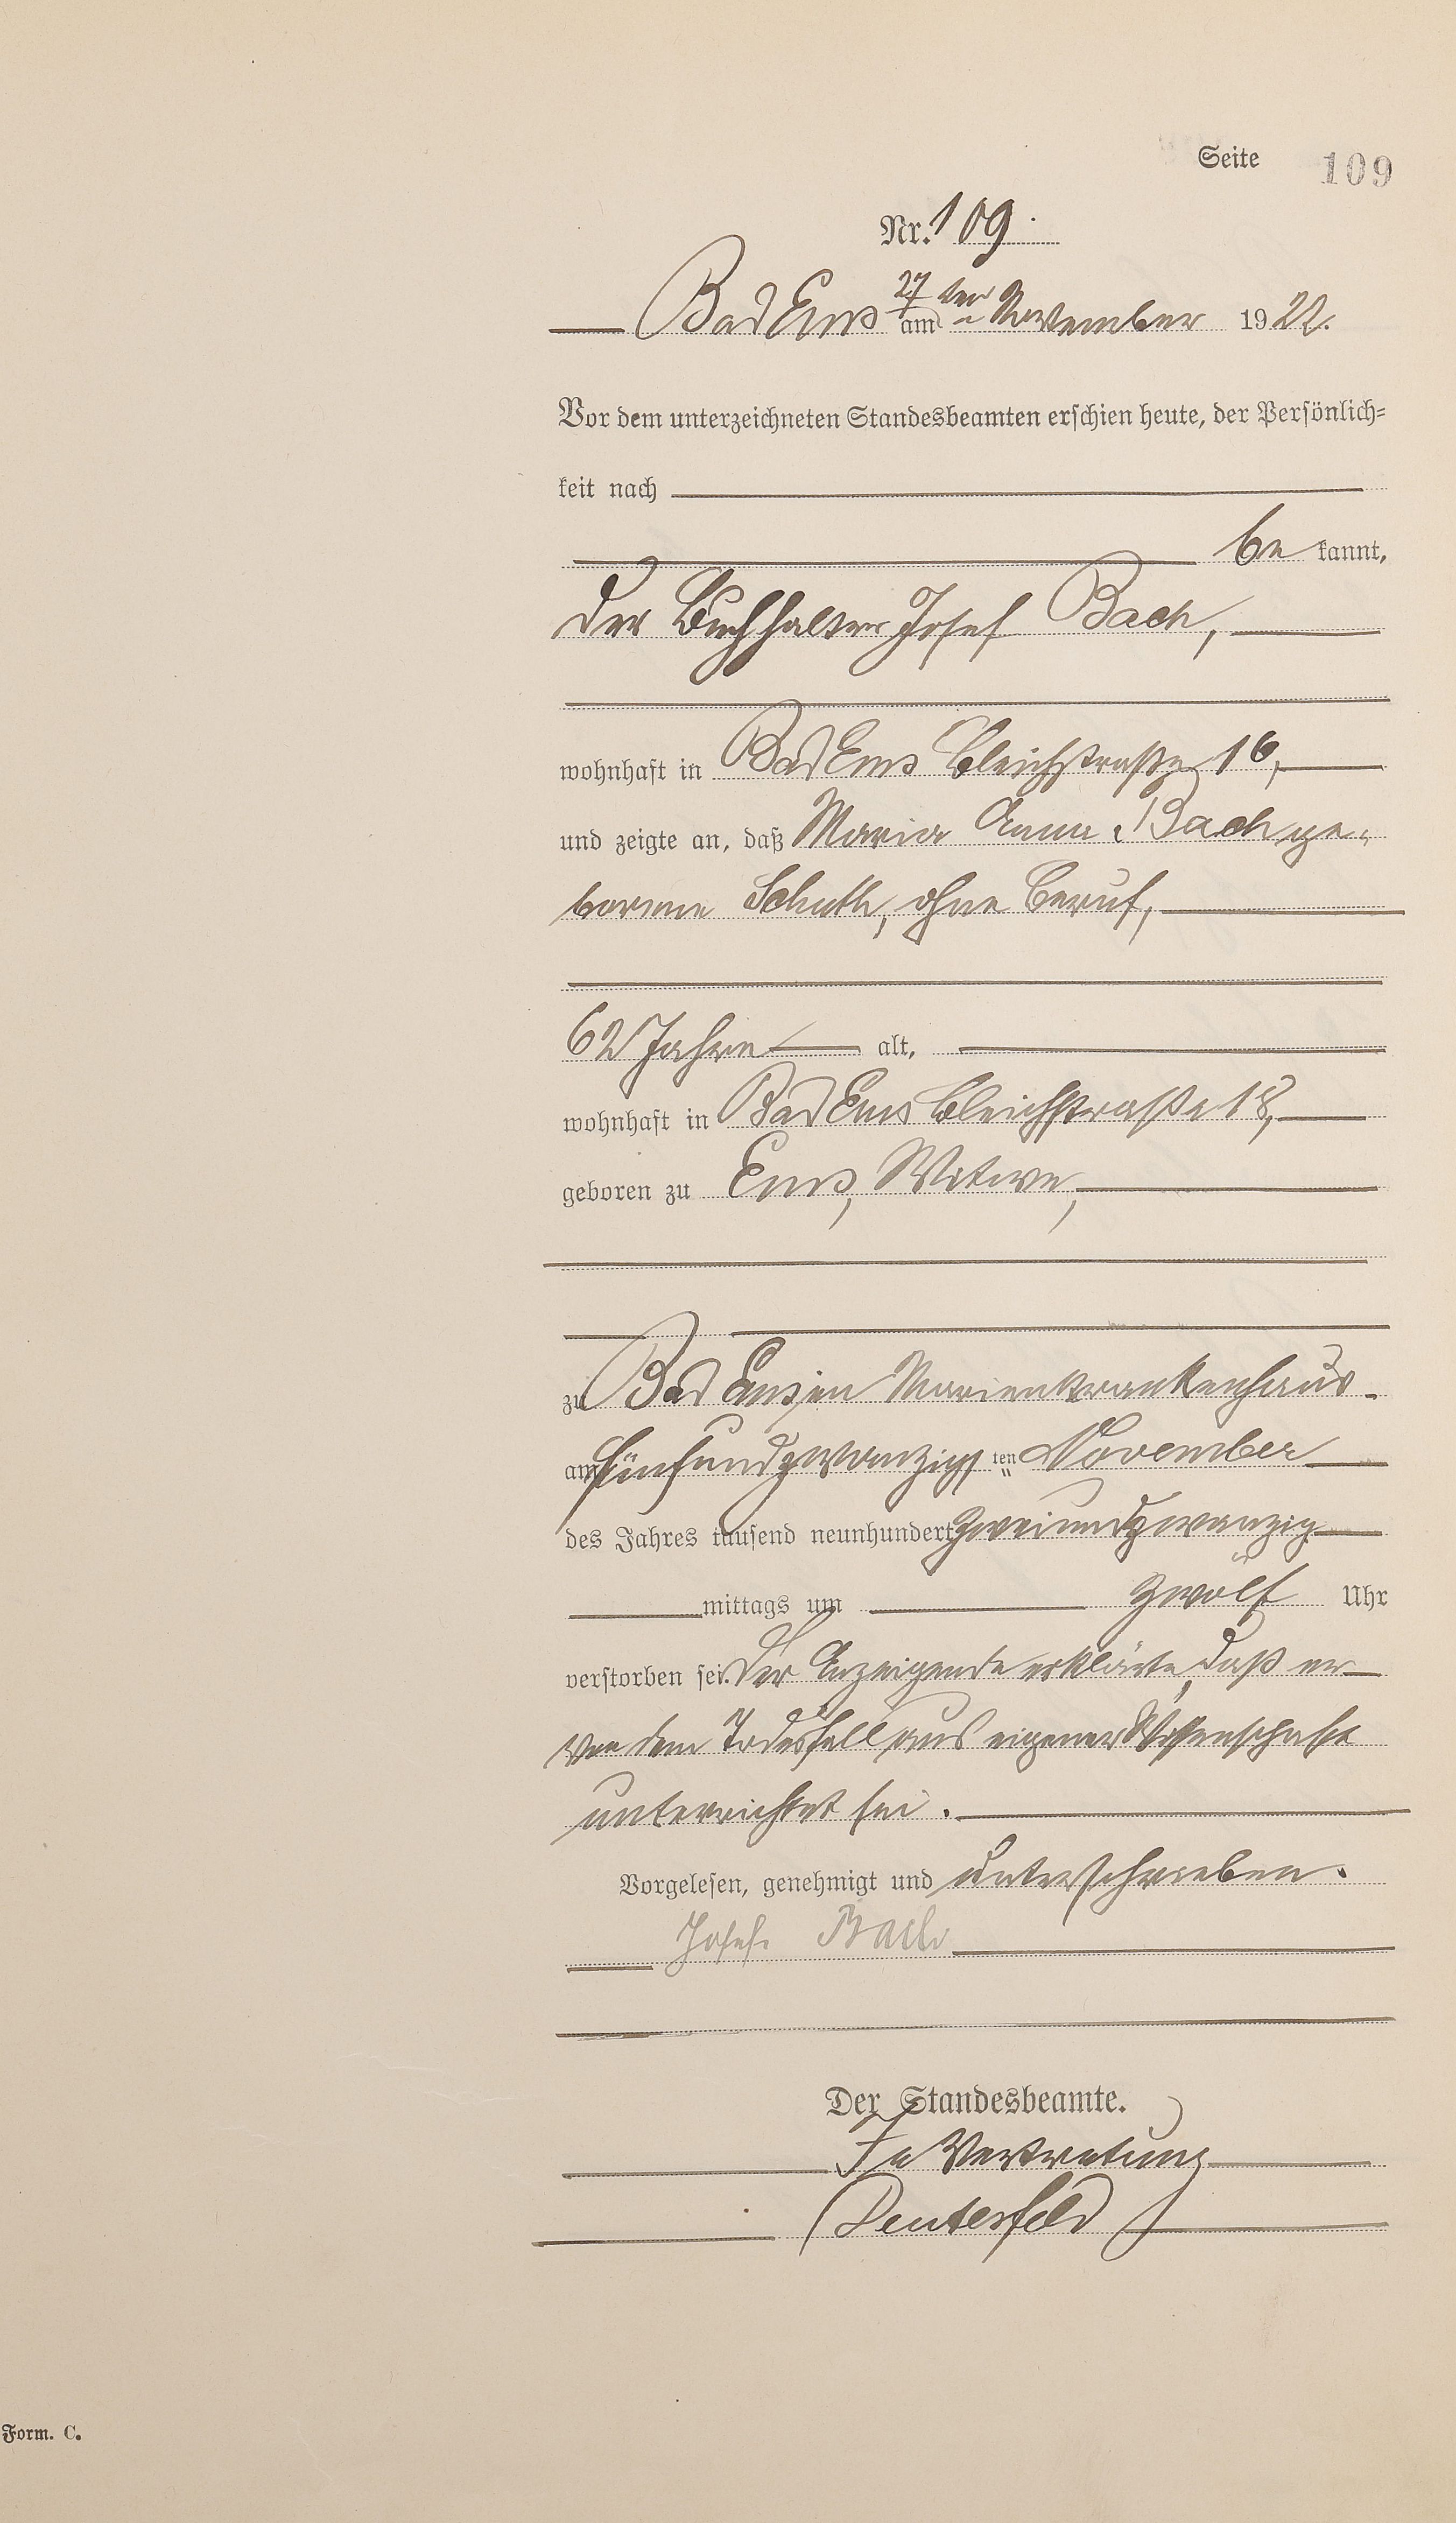 Seite 109
Nr. 109.
Bad Ems am 27ten November 1922.
Vor dem unterzeichneten Standesbeamten erschien heute, der Persönlich=
keit nach
be kannt,
der Buchhalter Josef Bach,
wohnhaft in Bad Ems Bleichstraße 16,
und zeigte an, daß Maria Anna Bach ge-
borene Schuth, ohne Beruf,
62 Jahre alt,
wohnhaft in Bad Ems Bleichstraße 18,
geboren zu Ems, Witwe,
zu Bad Ems, im Marienkrankenhaus
am fünfundzwanzigsten November
des Jahres tausend neunhundert zweiundzwanzig
mittags um zwölf Uhr
verstorben sei. Der Anzeigende erklärte, daß er
von dem Todesfall aus eigener Wissenschaft
unterrichtet sei.
Vorgelesen, genehmigt und unterschrieben.
Josef Bach
Der Standesbeamte.
In Vertretung
Form. C.